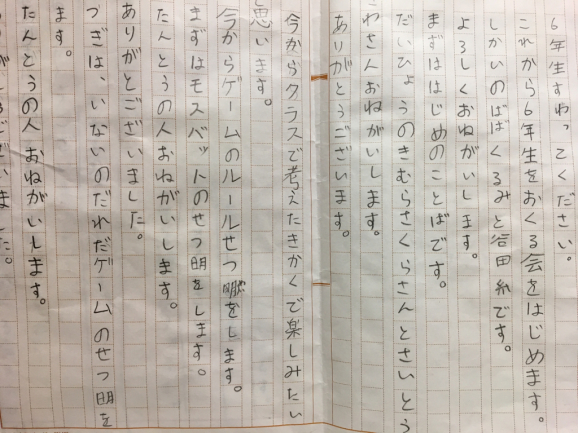 6年生すわってください。
これから6年生をおくる会をはじめます。
しかいのばばくるみと谷田糸です。
よろしくおねがいします。
まずははじめのことばです。
だいひょうのきむらさくらさんとさいとう
わさんおねがいします。
ありがとうございます。
今からクラスで考えたきかくで楽しみたい
思います。
今からゲームのルールせつ明をします。
まずはモスバットのせつ明をします。
たんとうの人おねがいします。
ありがとございました。
つぎは、いないのだれだゲームのせつ明を
ます。
たんとうの人おねがいします。